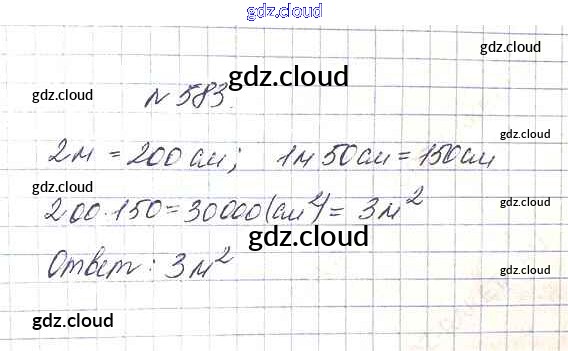 gdz.cloud
gdz.cloud
gdz.cloud
N 583.
gdz.cloud
gdz.cloud
2м = 200 см; 1м 50см = 150см
gdz.cloud
gdz.cloud
200·150=30000(см²)= 3м²
gdz.cloud
gdz.cloud
Ответ: 3м²
gdz.cloud
gdz.cloud